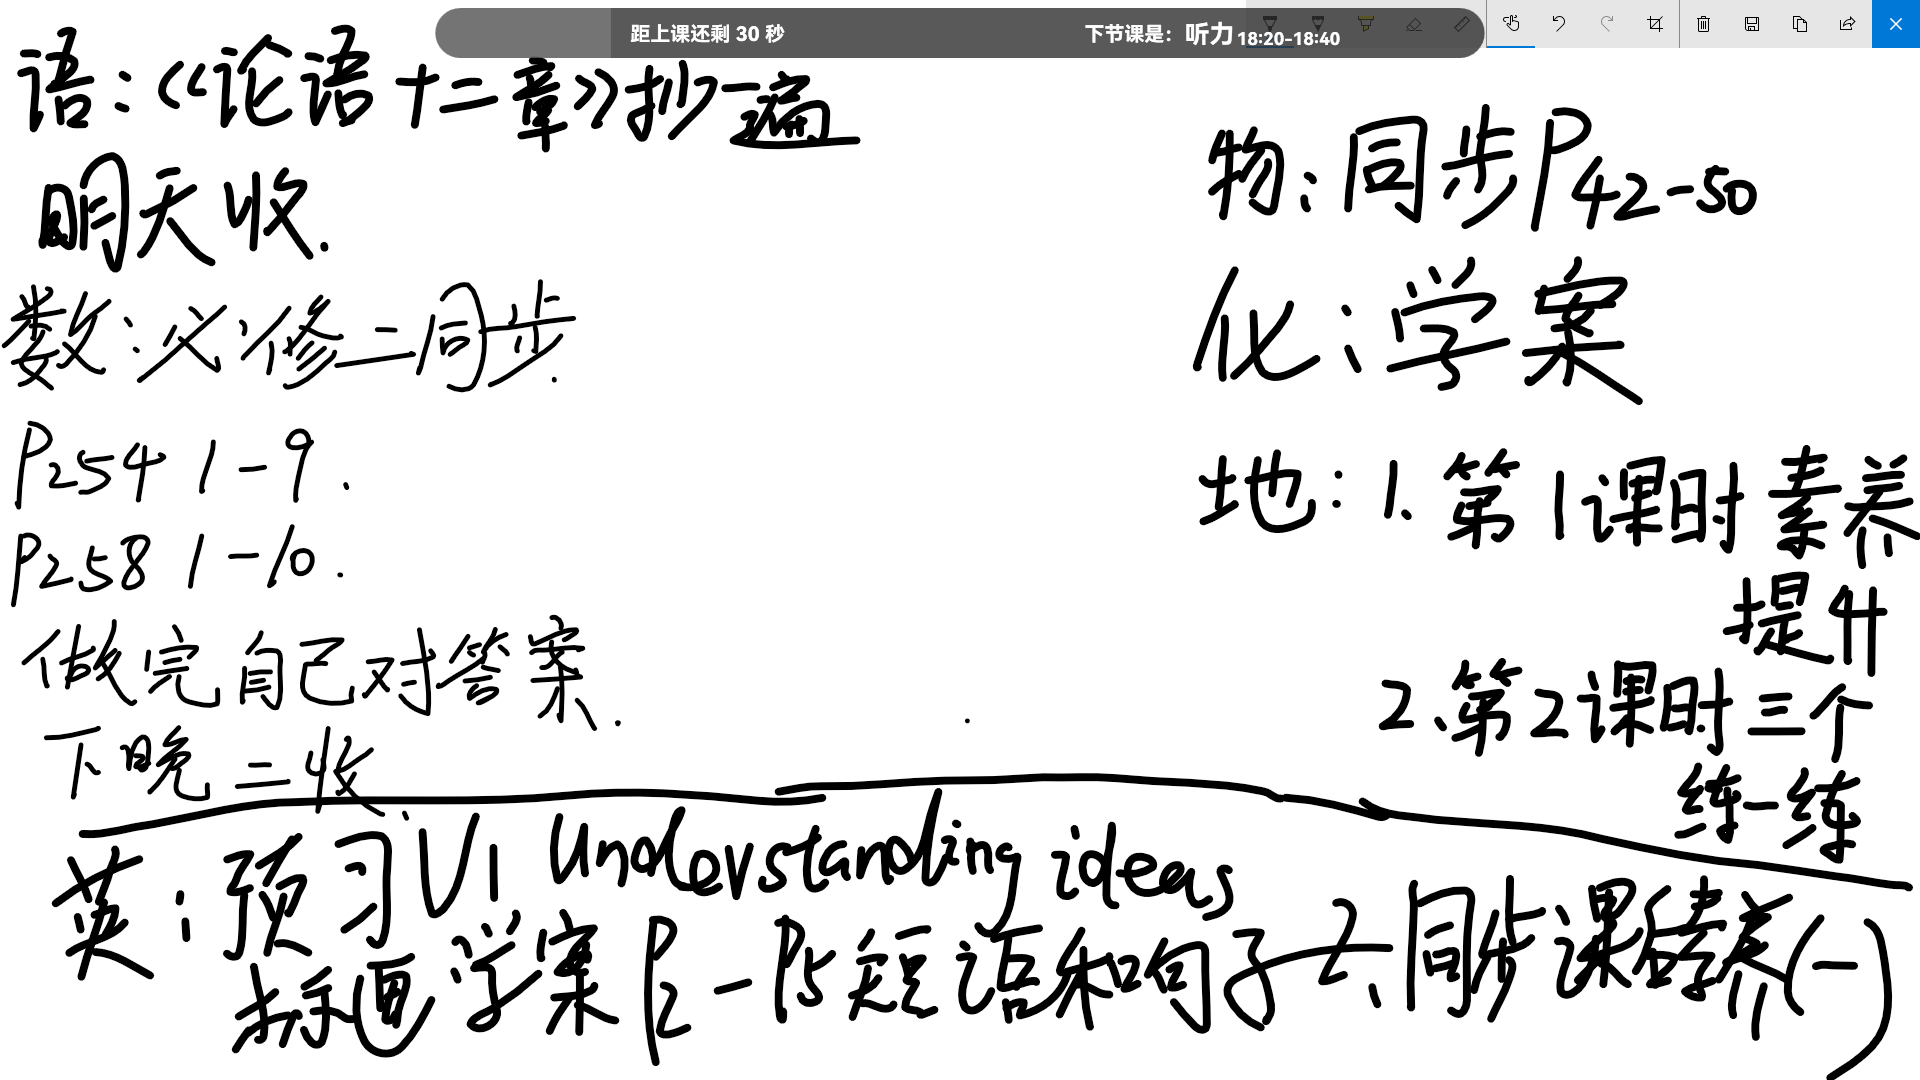 距上课还剩 30 秒
下节课是：听力 18:20-18:40
语：《论语十二章》抄一遍
明天收.
数：必修二同步.
P254 1-9.
P258 1-10.
做完自己对答案.
下晚二收.
物：同步P42-50
化：学案
地：1.第1课时素养
提升
2.第2课时三个
练一练
英：预习U1 Understanding ideas
标画学案P2-P5短语和句子 2.同步课后素养(一)